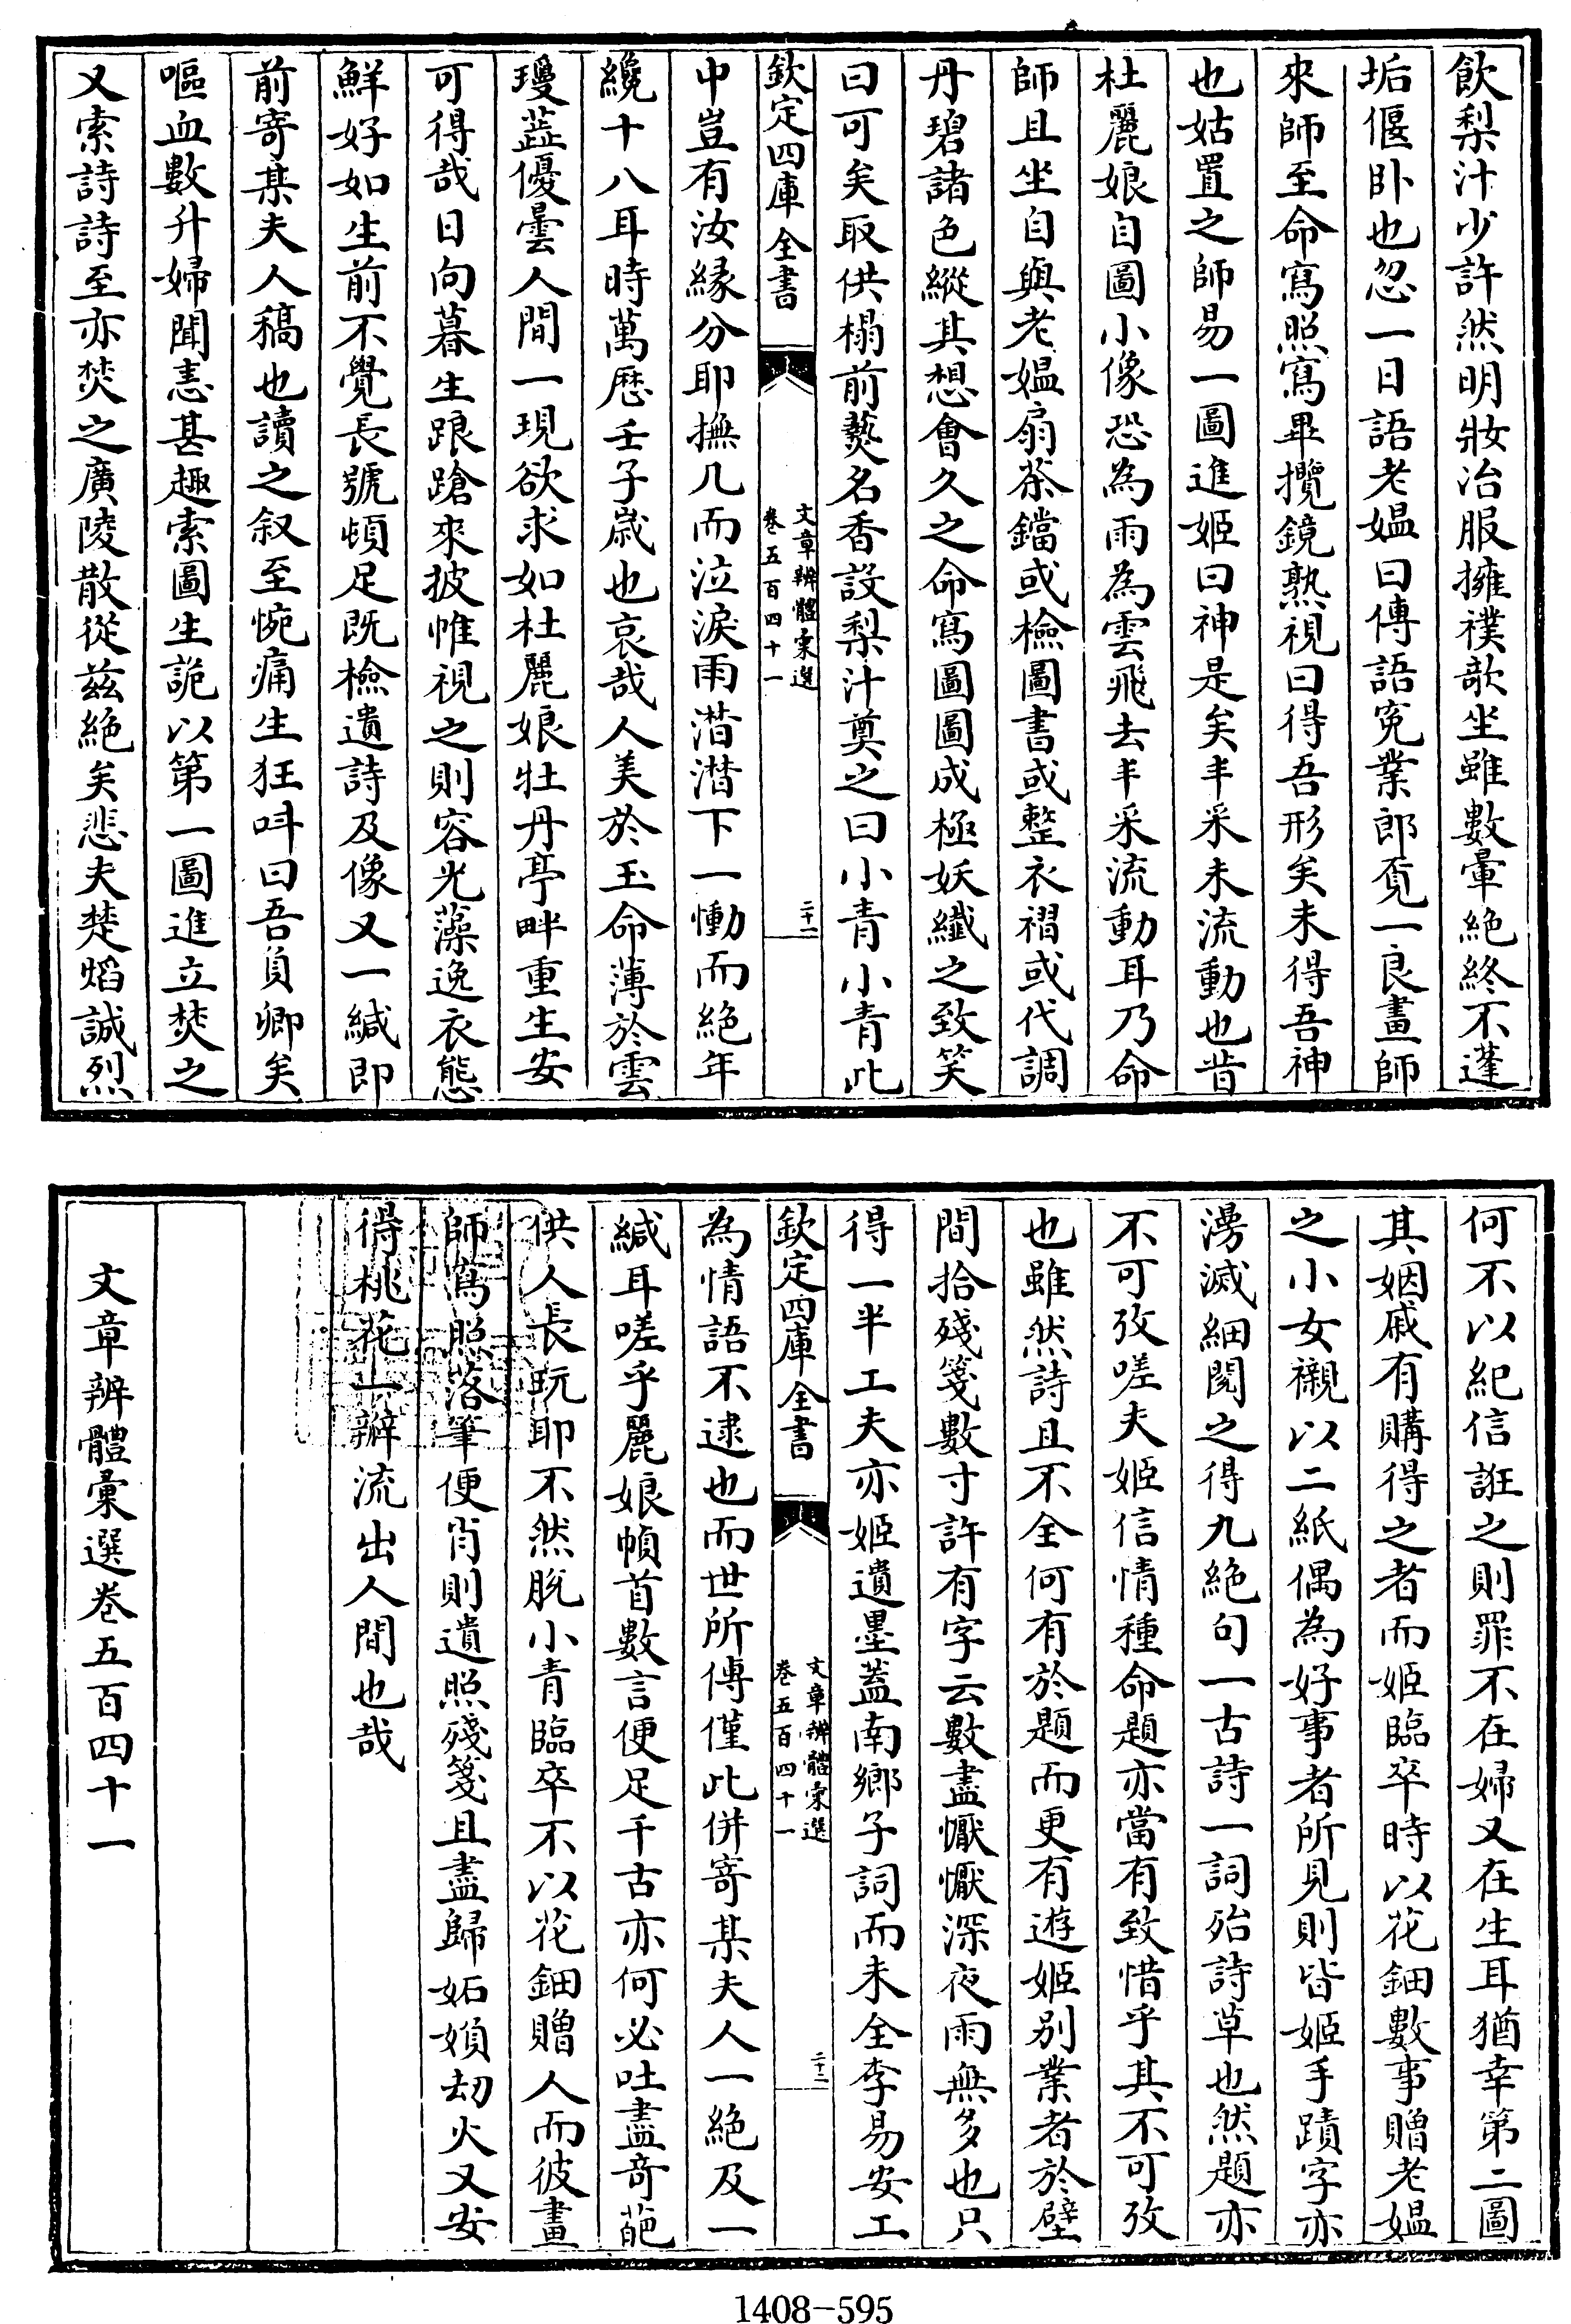 飲梨汁少許然明妝冶服擁襆歌坐雖數暈絶終不蓬
垢偃卧也忽一日語老媪曰傳語寃業郎覔一良畫師
來師至命寫照寫畢攬鏡熟視曰得吾形矣未得吾神
也姑置之師易一圖進姬曰神是矣丰采未流動也昔
杜麗娘自圖小像恐為雨為雲飛去丰采流動耳乃命
師且坐自與老媪扇茶鐺或檢圖書或整衣褶或代調
丹碧諸色縱其想會久之命寫圖圖成極妖纖之致笑
曰可矣取供榻前爇名香設梨汁奠之曰小青小青此
欽定四庫全書
文章辨體彚選
卷五百四十一
二十一
中豈有汝緣分耶撫几而泣淚雨潸潸下一慟而絶年
纔十八耳時萬厯壬子嵗也哀哉人美於玉命薄於雲
瓊蕋優曇人間一現欲求如杜麗娘牡丹亭畔重生安
可得哉日向暮生踉蹌來披帷視之則容光藻逸衣態
鮮好如生前不覺長號頓足既檢遺詩及像又一緘即
前寄某夫人稿也讀之叙至惋痛生狂呌曰吾負卿矣
嘔血數升婦聞恚甚趣索圖生詭以第一圖進立焚之
又索詩詩至亦焚之廣陵散從兹絶矣悲夫楚熖誠烈
何不以紀信誑之則罪不在婦又在生耳猶幸第二圖
其姻戚有購得之者而姬臨卒時以花鈿數事贈老媪
之小女襯以二紙偶為好事者所見則皆姬手蹟字亦
漫滅細閲之得九絶句一古詩一詞殆詩草也然題亦
不可攷嗟夫姬信情種命題亦當有致惜乎其不可攷
也雖然詩且不全何有於題而更有遊姬别業者於壁
間拾殘箋數寸許有字云數盡懨懨深夜雨無多也只
得一半工夫亦姬遺墨蓋南鄉子詞而未全李易安工
欽定四庫全書
文章辨體彚選
卷五百四十一
二十二
為情語不逮也而世所傳僅此併寄某夫人一絶及一
緘耳嗟乎麗娘幀首數言便足千古亦何必吐盡奇葩
供人長玩耶不然脫小青臨卒不以花鈿贈人而彼畫
師寫照落筆便肖則遺照殘箋且盡歸妬媍劫火又安
得桃花一瓣流出人間也哉
文章辨體彚選卷五百四十一
1408-595